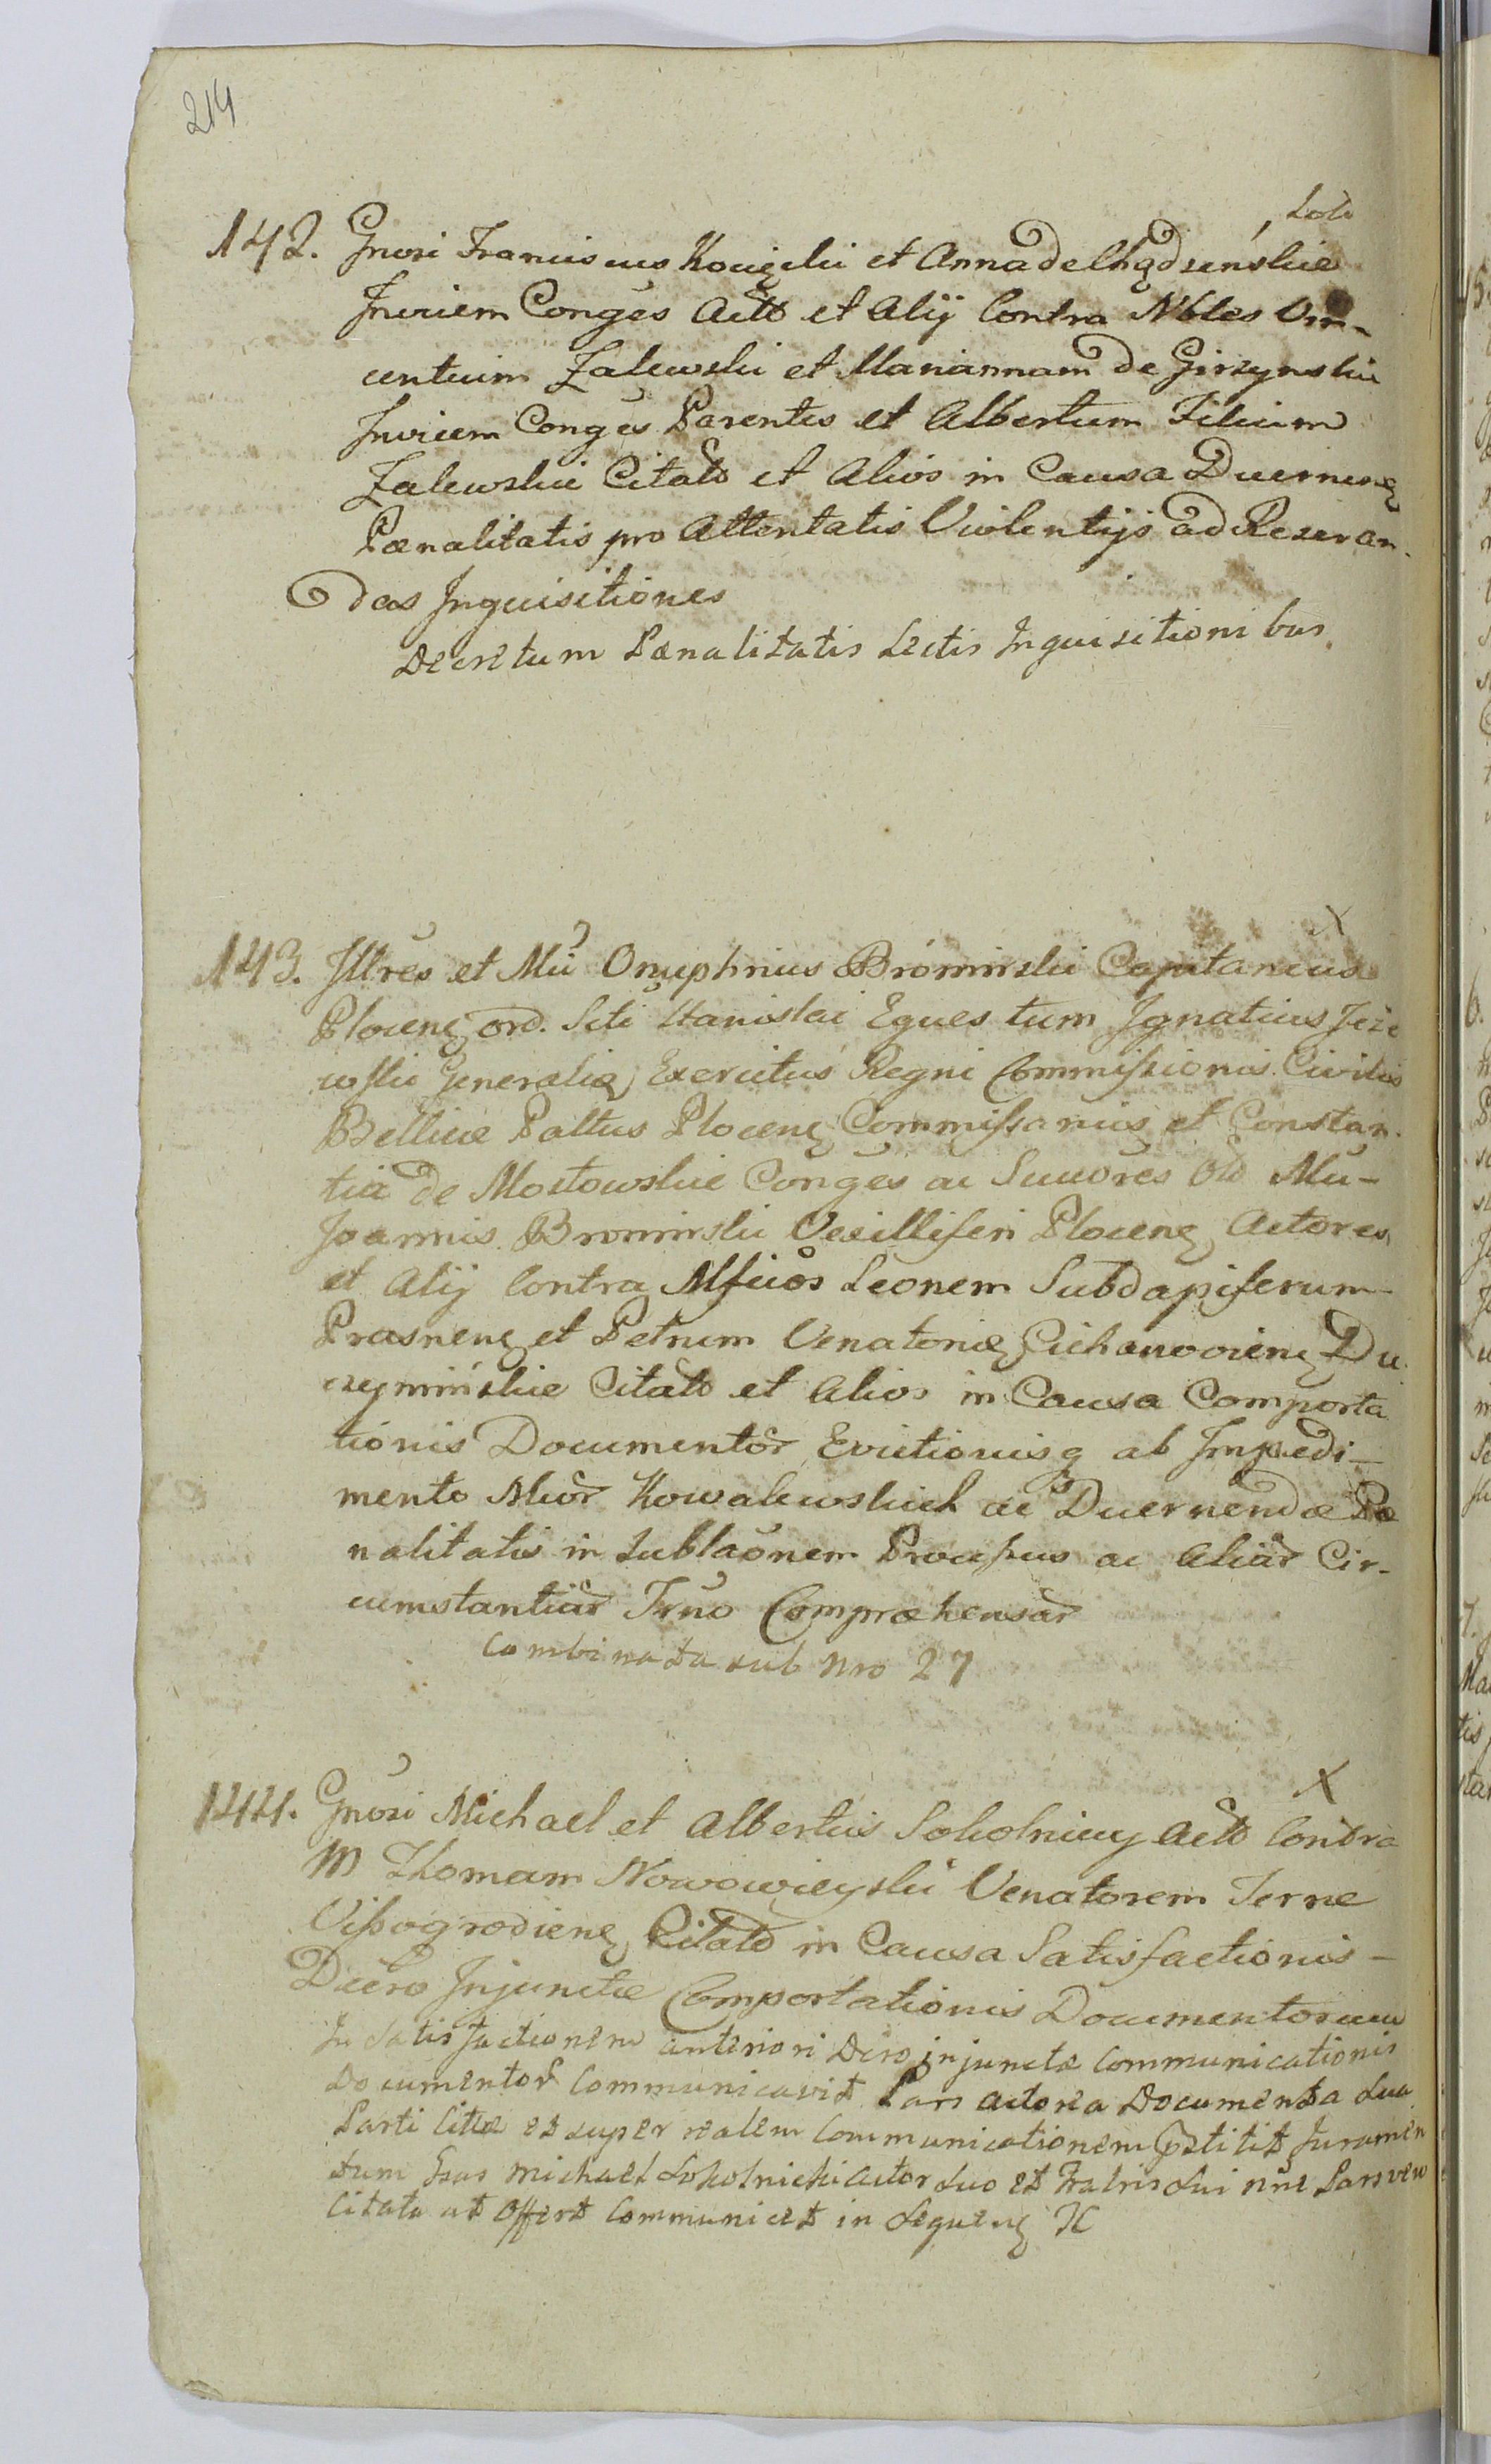 214
142. Gnosi Franciscus Kowęcki et Anna de Chądzenskie
Invicem Conges Actō et Alij Contra Nbles Vin-
centium Zalewski et Mariannam de Girzynskie
Invicem Conges Parentes et Albertum Filium
Zalewskie Citatō et Alios in Causa Decernens
Pænalitatis pro Attentatis Violentijs ad Reseran-
das Inquisitiones
Decretum Pænalitatis Lectis Inquisitionibus
X
143. Illres et Mū Onuphrius Bromirski Capitaneus
Plocens ord. Scti Stanislai Eques tum Ignatius Jeze
wski Generalis Exercitus Regni Commissionis Civilis
Bellicæ Paltus Plocens Commissarius et Constan-
tia de Mostowskie Conges ac Succores Old Mū-
Joannis Bromirski Vexilliferi Plocens Actores
et Alij Contra Mficos Leonem Subdapiferum
Prasnens et Petrum Venatoris Ciechanoviens Du
czyminskie Citatō et Alios in Causa Comporta
tionis Documentor Evictionisq ab Impedi-
mento Mcor Kowalewskich ac Decernendæ Pæ
nalitatis in Sublaōnem Processus ac Aliar Cir-
cumstantiar Trno Compræhensar
Combinata sub Nro 27
X
144. Gnosi Michael et Albertus Sokolniccy Actō Contra
M Thomam Nowowieyski Venatorem Terræ
Vissogrodiens Citatō in Causa Satisfactionis -
Dcero Injunctæ Comportationis Documentorum
In Satisfactionem anteriori Dcro injunctæ Communicationis
Documentor Communicavit Pars actorea Documenta sua
Parti Cittæ et super realem Communicationem pstitit Juramen
tum Gsus Michael Sokolnicki actor suo et Fratris sui nne Pars vero
Citata ut offert Communicet in Sequens